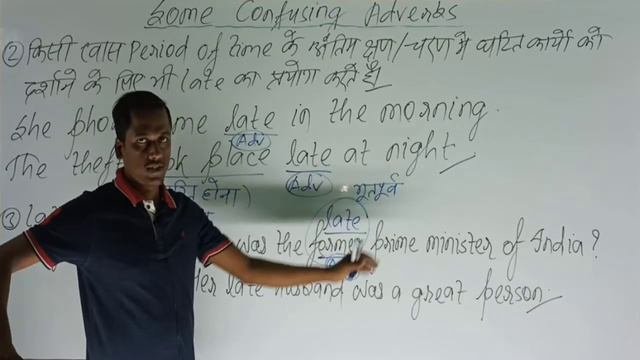 Some Confusing Adverbs
② किसी खास Period of time के अंतिम क्षण/चरण में घटित कार्यों को
दर्शाने के लिए भी late का प्रयोग करते हैं।
She pho me late in the morning.
Adv
The theft ok place late at night
होना) Adv भूतपूर्व
③ late
was the former prime minister of India?
Her late husband was a great person.